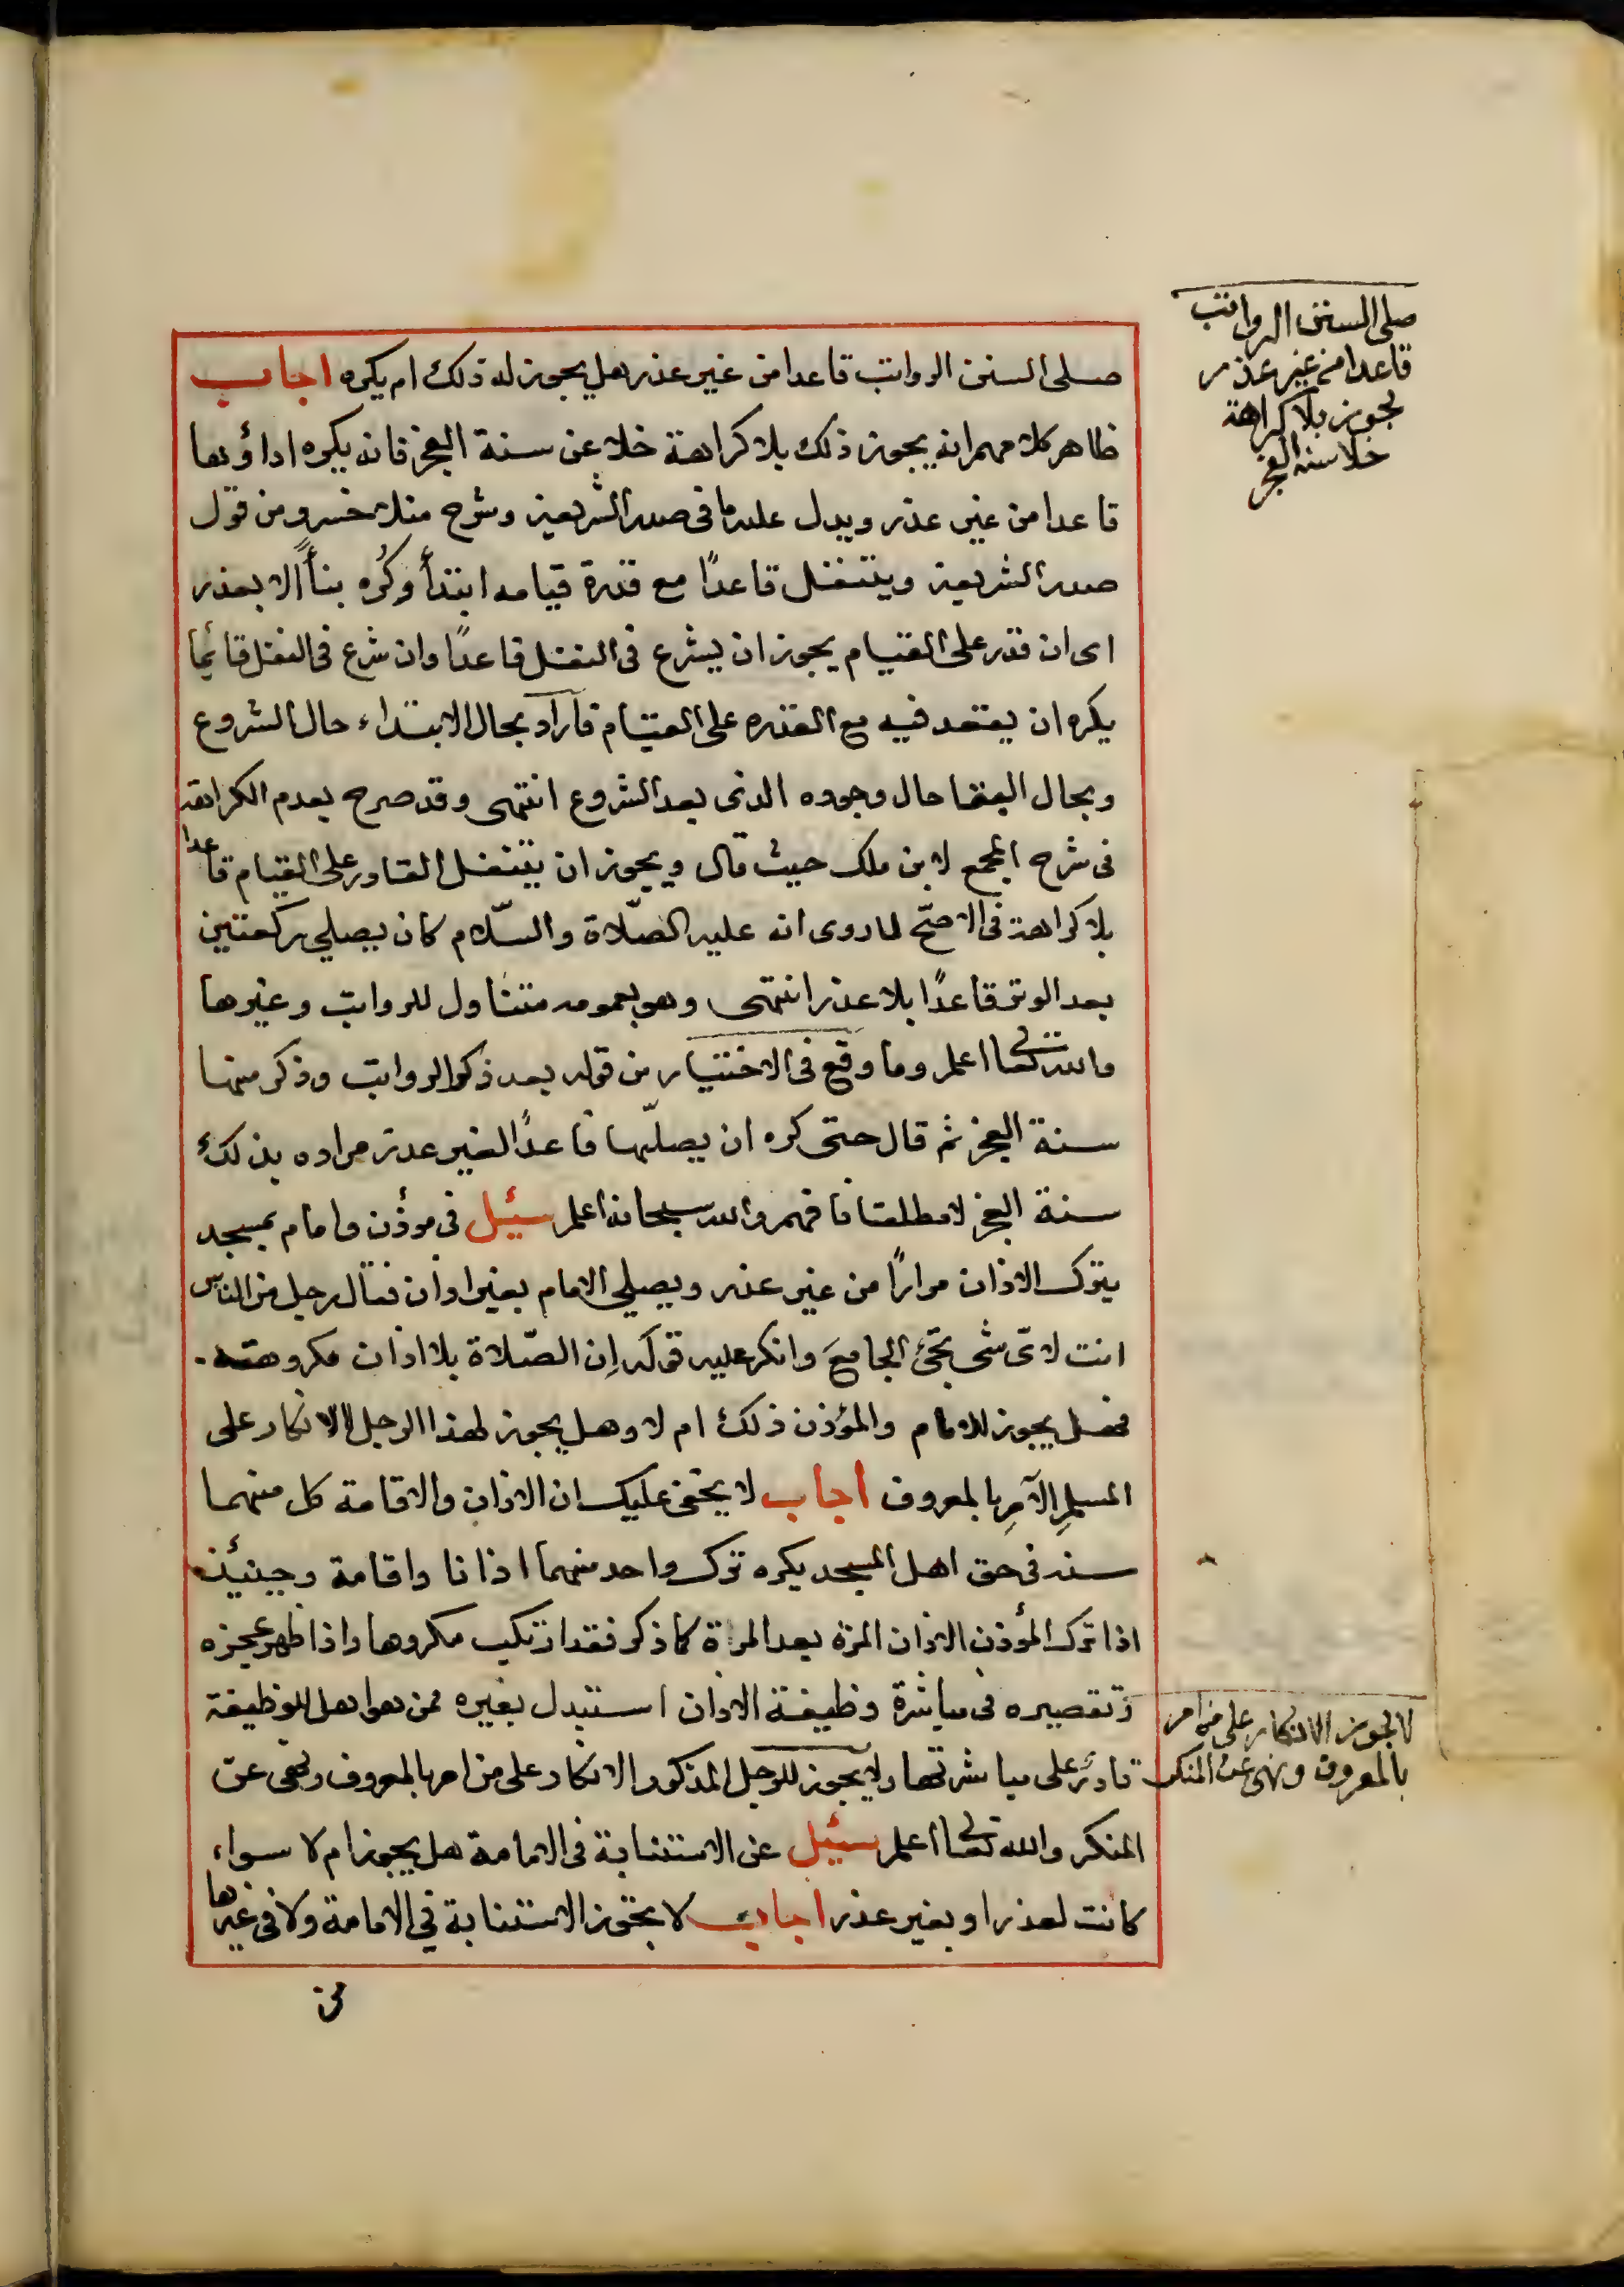 صلى السنن الرواتب قاعدا من غير عذر هل يجوز له ذلك ام يكره اجاب
ظاهر كلامهم انه يجوز ذلك بلا كراهة خلا عن سنة الفجر فانه يكره اداؤها
قاعدا من غير عذر ويدل عليه ما فى صدر الشريعة وشرح منلا خسرو من قول
صدر الشريعة ويتنفل قاعدًا مع قدرة قيامه ابتدأ وكُره بنأً الا بعذر
اى ان قدر على القيام يجوز ان يشرع فى النفل قاعدًا وان شرع فى النفل قائما
يكره ان يقعد فيه مع القدره على القيام فاراد بحال الابتداء حال الشروع
وبحال البقا حال وجوده الذى بعد الشروع انتهى وقد صرح بعدم الكراهة
فى شرح المجمع لابن ملك حيث قال ويجوز ان يتنفل القادر على القيام قاعدا
بلا كراهة فى الاصحّ لما روى انه عليه الصّلاة والسّلام كان يصلي ركعتين
بعد الوتر قاعدًا بلا عذر انتهى وهو بعمومه متناول للرواتب وغيرها
والله تعالى اعلم وما وقع فى الاختيار من قوله بعد ذكر الرواتب وذكر منها
سنة الفجر ثم قال حتى كره ان يصلّيها قاعدًا لغير عذر مراده بذلك
سنة الفجر لا مطلقا فافهم والله سبحانه اعلم سئيل فى مؤذن وامام بمسجد
يترك الاذان مرارًا من غير عذر ويصلي الامام بغير اذان فقال رجل من الناس
انت لاىّ شى تجئ الجامعَ وانكر عليه قوله إن الصّلاة بلا اذان مكروهة
فهل يجوز للامام والمؤذن ذلك ام لا وهل يجوز لهذا الرجل الانكار على
المسلمِ الآمرِ بالمعروف اجاب لا يخفى عليك ان الاذان والاقامة كل منهما
سنه فى حق اهل المسجد يكره ترك واحد منهما اذانا واقامة وحينئذ
اذا ترك المؤذن الاذان المره بعد المرة كما ذكر فقد ارتكب مكروها واذا ظهر عجزه
وتقصيره فى مباشرة وظيفة الاذان استبدل بغيره ممن هو اهل للوظيفة
قادرٌ على مباشرتها ولا يجوز للرجل المذكور الانكار على من امر بالمعروف ونهى عن
المنكر والله تعالى اعلم سئيل عن الاستنابة فى الامامة هل يجوز ام لا سواء
كانت لعذر او بغير عذر اجاب لا يجوز الاستنابة في الامامة ولا فى غيرها
من
صلى السنن الرواتب
قاعدا من غير عذر
يجوز بلا كراهة
خلا سنة الفجر
لا يجوز الانكار على من امر
بالمعروف ونهى عن المنكر